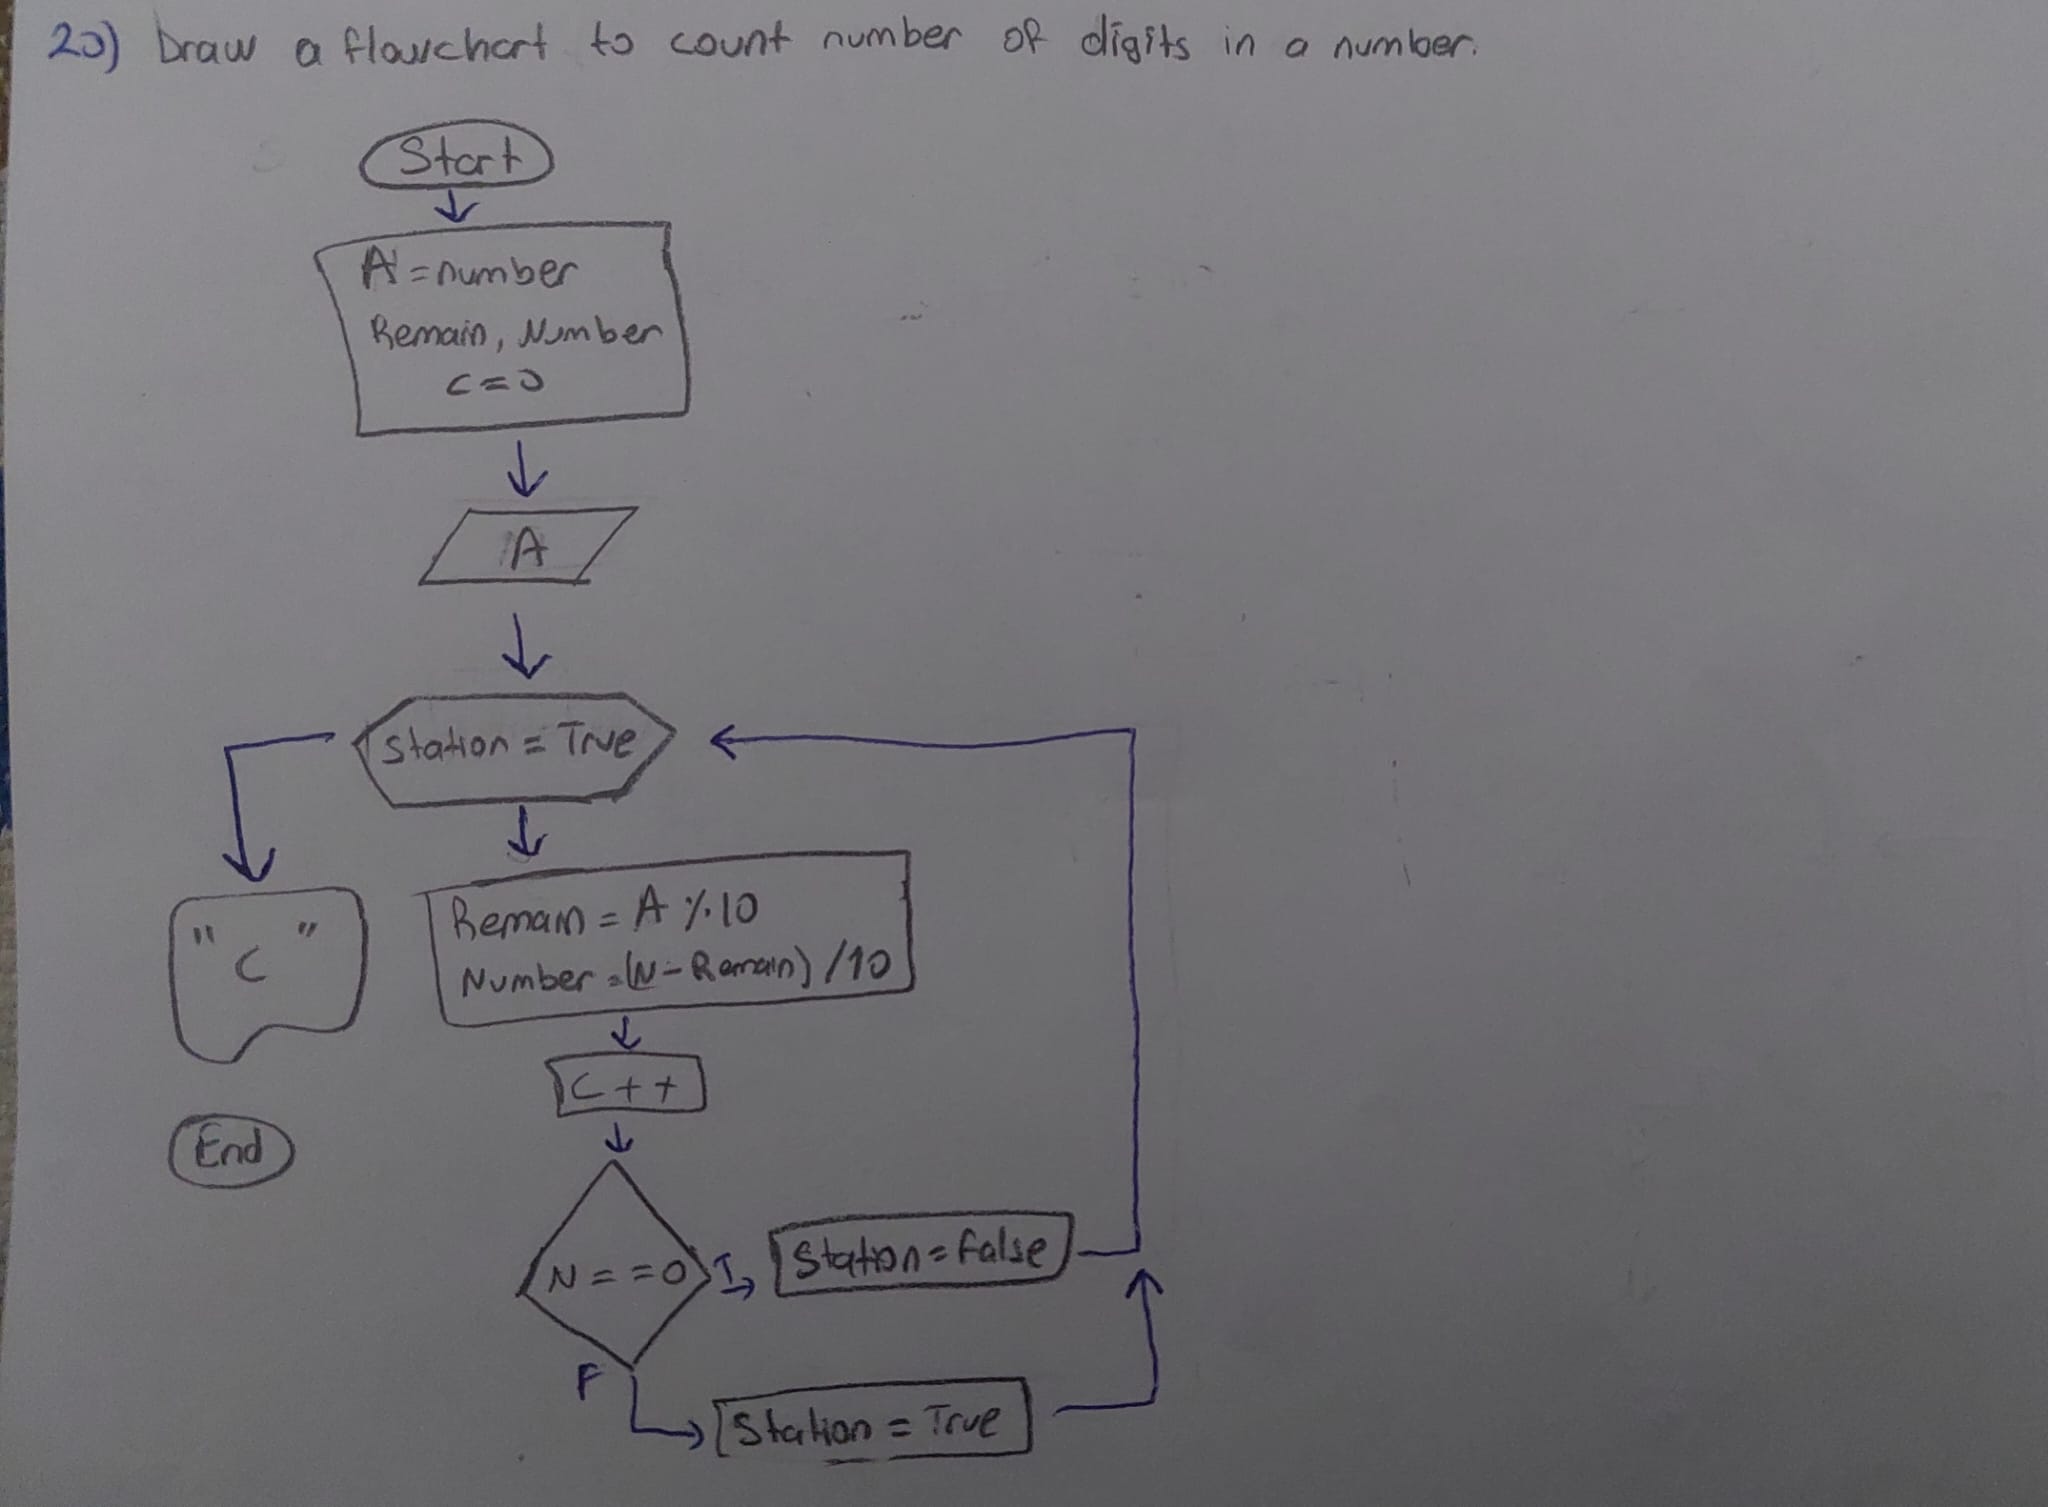 20) Draw a flowchart to count number of digits in a number.
Start
A = number
Remain, Number
C = 0
A
Station = True
Remain = A % 10
Number = (N - Remain) / 10
" C "
C++
End
N == 0
T
Station = False
F
Station = True